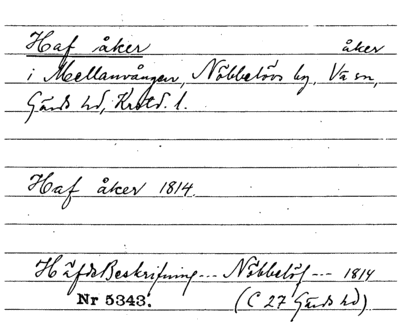 Haf åker åker
i Mellanvången, Nöbbelövs by, Vä sn,
Gärds hd, Krstd. l.
Haf åker 1814
HäfdeBeskrifning --- Nöbbelöf --- 1814
Nr 5343. (C 27 Gärds hd)